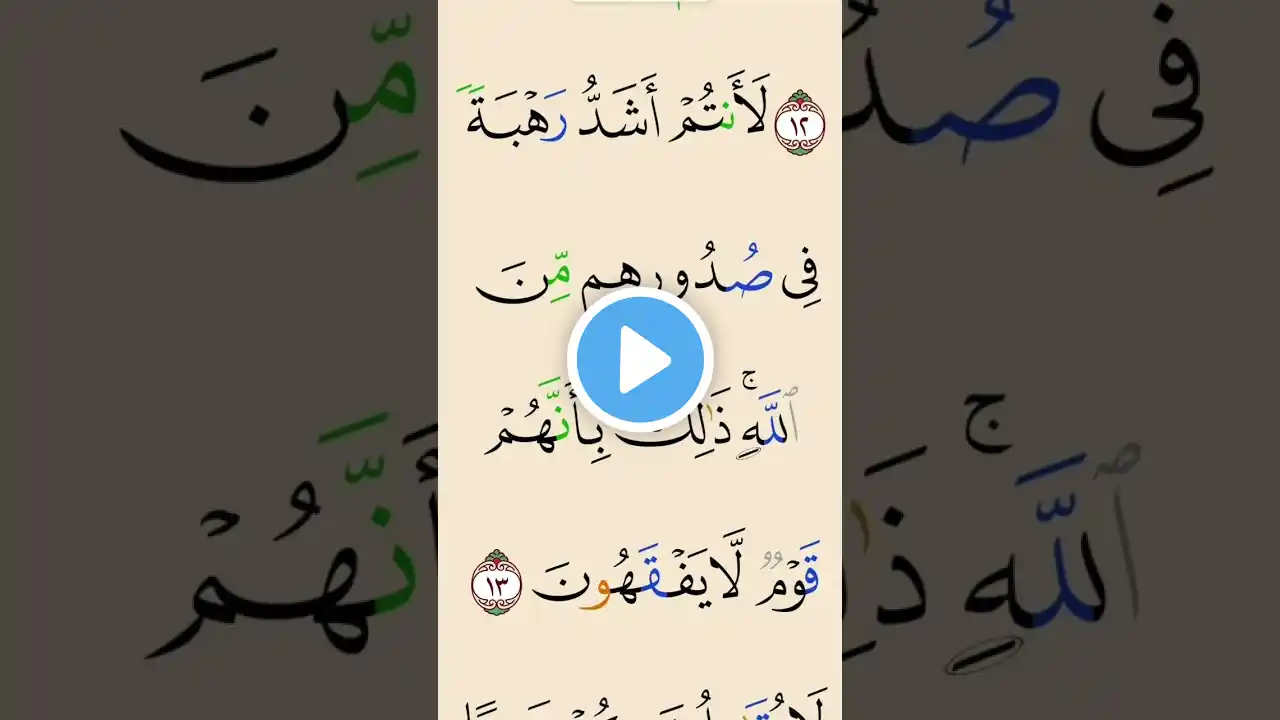 ١٢ لَأَنتُمْ أَشَدُّ رَهْبَةً
فِى صُدُورِهِم مِّنَ
ٱللَّهِ ۚ ذَٰلِكَ بِأَنَّهُمْ
قَوْمٌ لَّا يَفْقَهُونَ ١٣